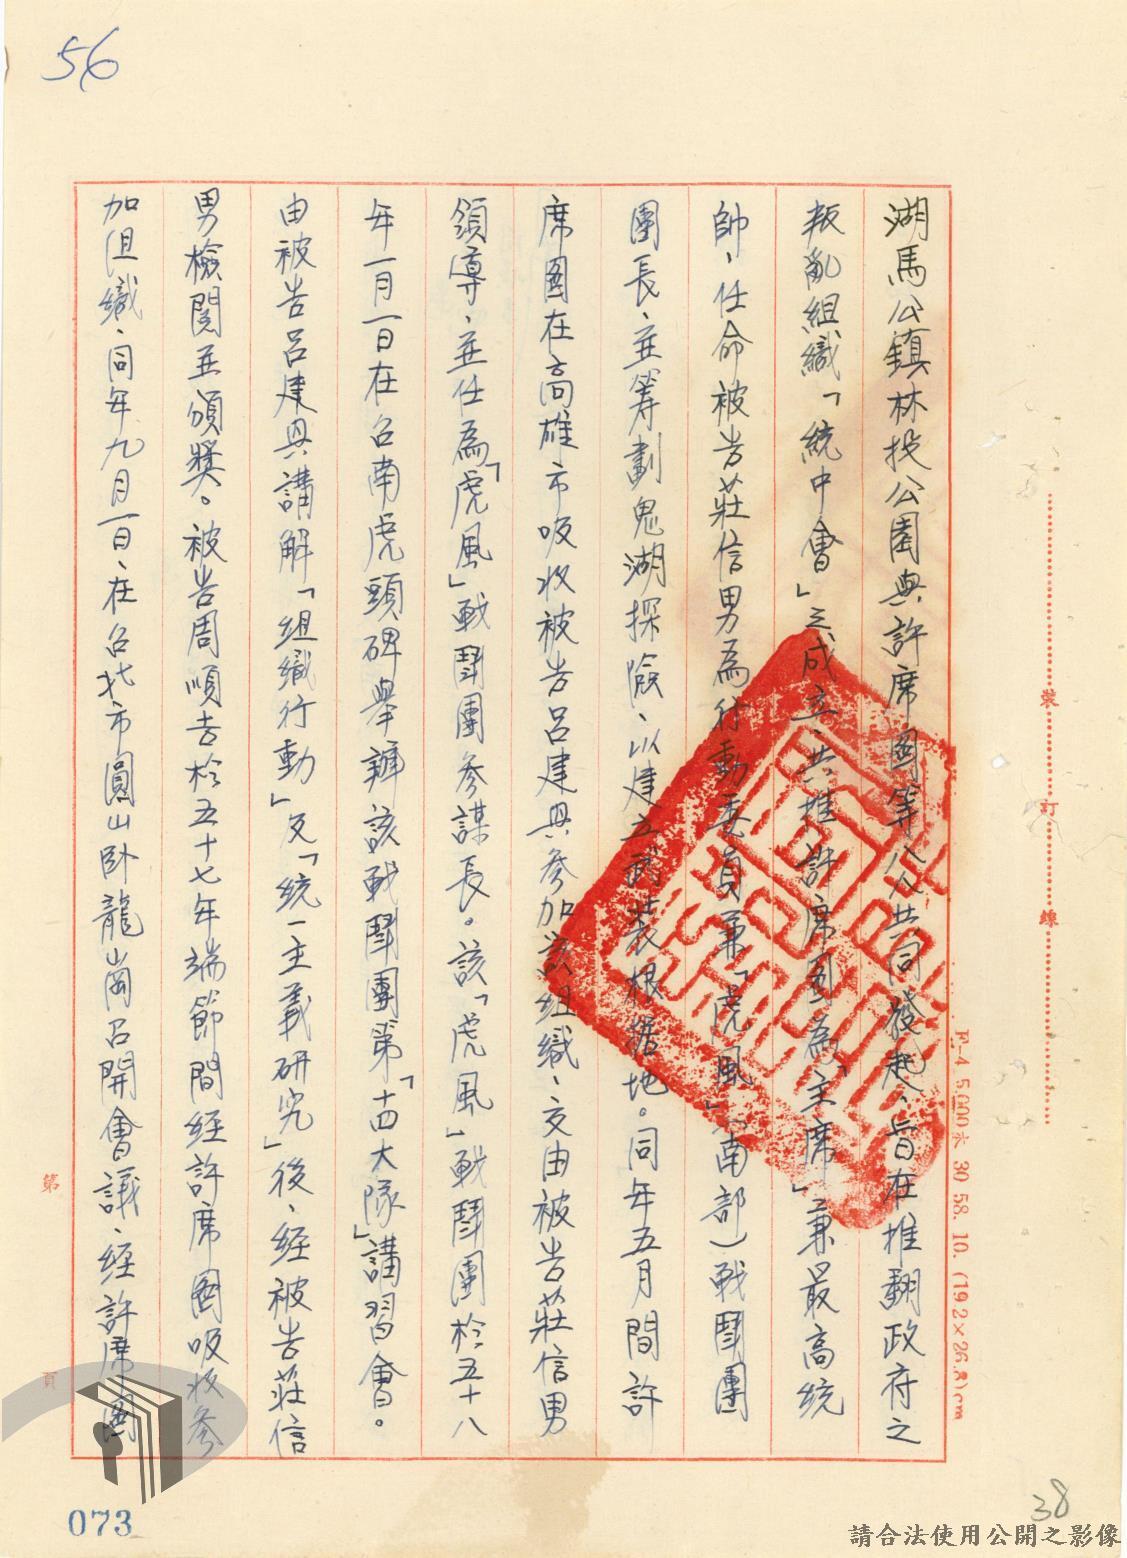 56
湖馬公鎮林投公園與許席圖等八人共同發起、旨在推翻政府之
叛亂組織「統中會」之成立、共推許席圖為「主席」兼最高統
帥、任命被告莊信男為行動委員兼「虎風」（南部）戰鬥團
團長、並籌劃鬼湖探險、以建立武裝根據地。同年五月間許
席圖在高雄市吸收被告呂建興參加該組織、交由被告莊信男
領導、並任為「虎風」戰鬥團參謀長。該「虎風」戰鬥團於五十八
年一月一日在台南虎頭碑舉辦該戰鬥團第「十四大隊」講習會。
由被告呂建興講解「組織行動」及「統一主義研究」後、經被告莊信
男檢閱並頒獎。被告周順吉於五十七年端節間經許席圖吸收參
加組織、同年九月一日、在台北市圓山臥龍崗召開會議、經許席圖
裝訂線
5.000本 30 58. 10. (19.2×26.8)cm
第 頁
073
38
請合法使用公開之影像